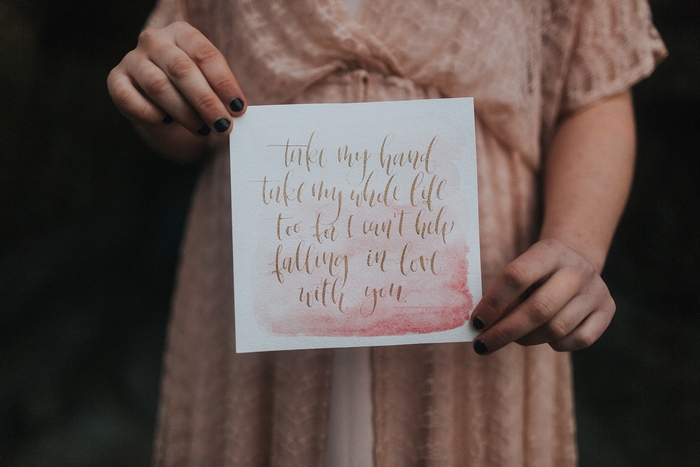 take my hand
take my whole life
too for I can't help
falling in love
with you.